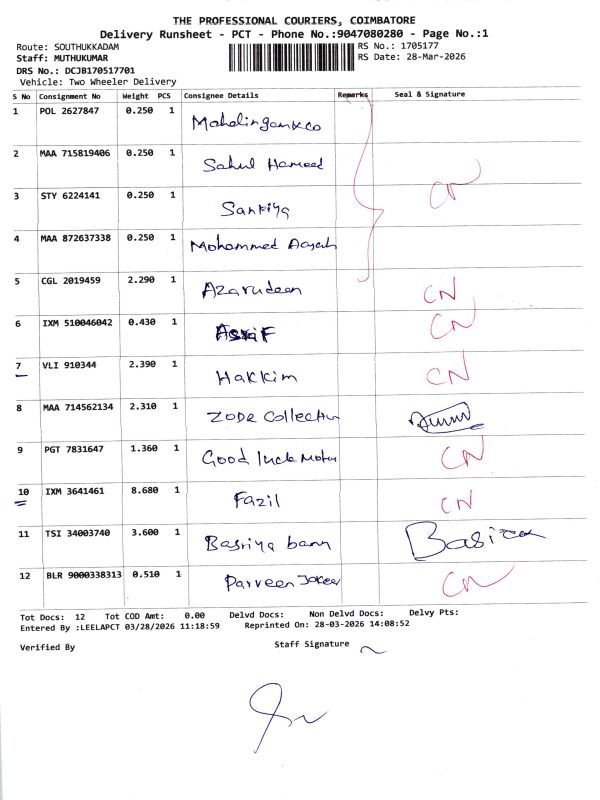 THE PROFESSIONAL COURIERS, COIMBATORE
Delivery Runsheet - PCT - Phone No.:9047080280 - Page No.:1
Route: SOUTHUKKADAM RS No.: 1705177
Staff: MUTHUKUMAR RS Date: 28-Mar-2026
DRS No.: DCJB170517701
Vehicle: Two Wheeler Delivery
S No Consignment No Weight PCS Consignee Details Remarks Seal & Signature
1 POL 2627847 0.250 1
2 MAA 715819406 0.250 1 Sahul Hameed CN
3 STY 6224141 0.250 1
4 MAA 872637338 0.250 1 Mohammed
5 CGL 2019459 2.290 1 Azarudeen CN
6 IXM 510046042 0.430 1 CN
7 VLI 910344 2.390 1 Hakkim CN
8 MAA 714562134 2.310 1 Collection
9 PGT 7831647 1.360 1 Good luck Motor CN
10 IXM 3641461 8.680 1 Fazil CN
11 TSI 34003740 3.600 1 Basriya banu
12 BLR 9000338313 0.510 1 Parveen CN
Tot Docs: 12 Tot COD Amt: 0.00 Delvd Docs: Non Delvd Docs: Delvy Pts:
Entered By :LEELAPCT 03/28/2026 11:18:59 Reprinted On: 28-03-2026 14:08:52
Verified By Staff Signature